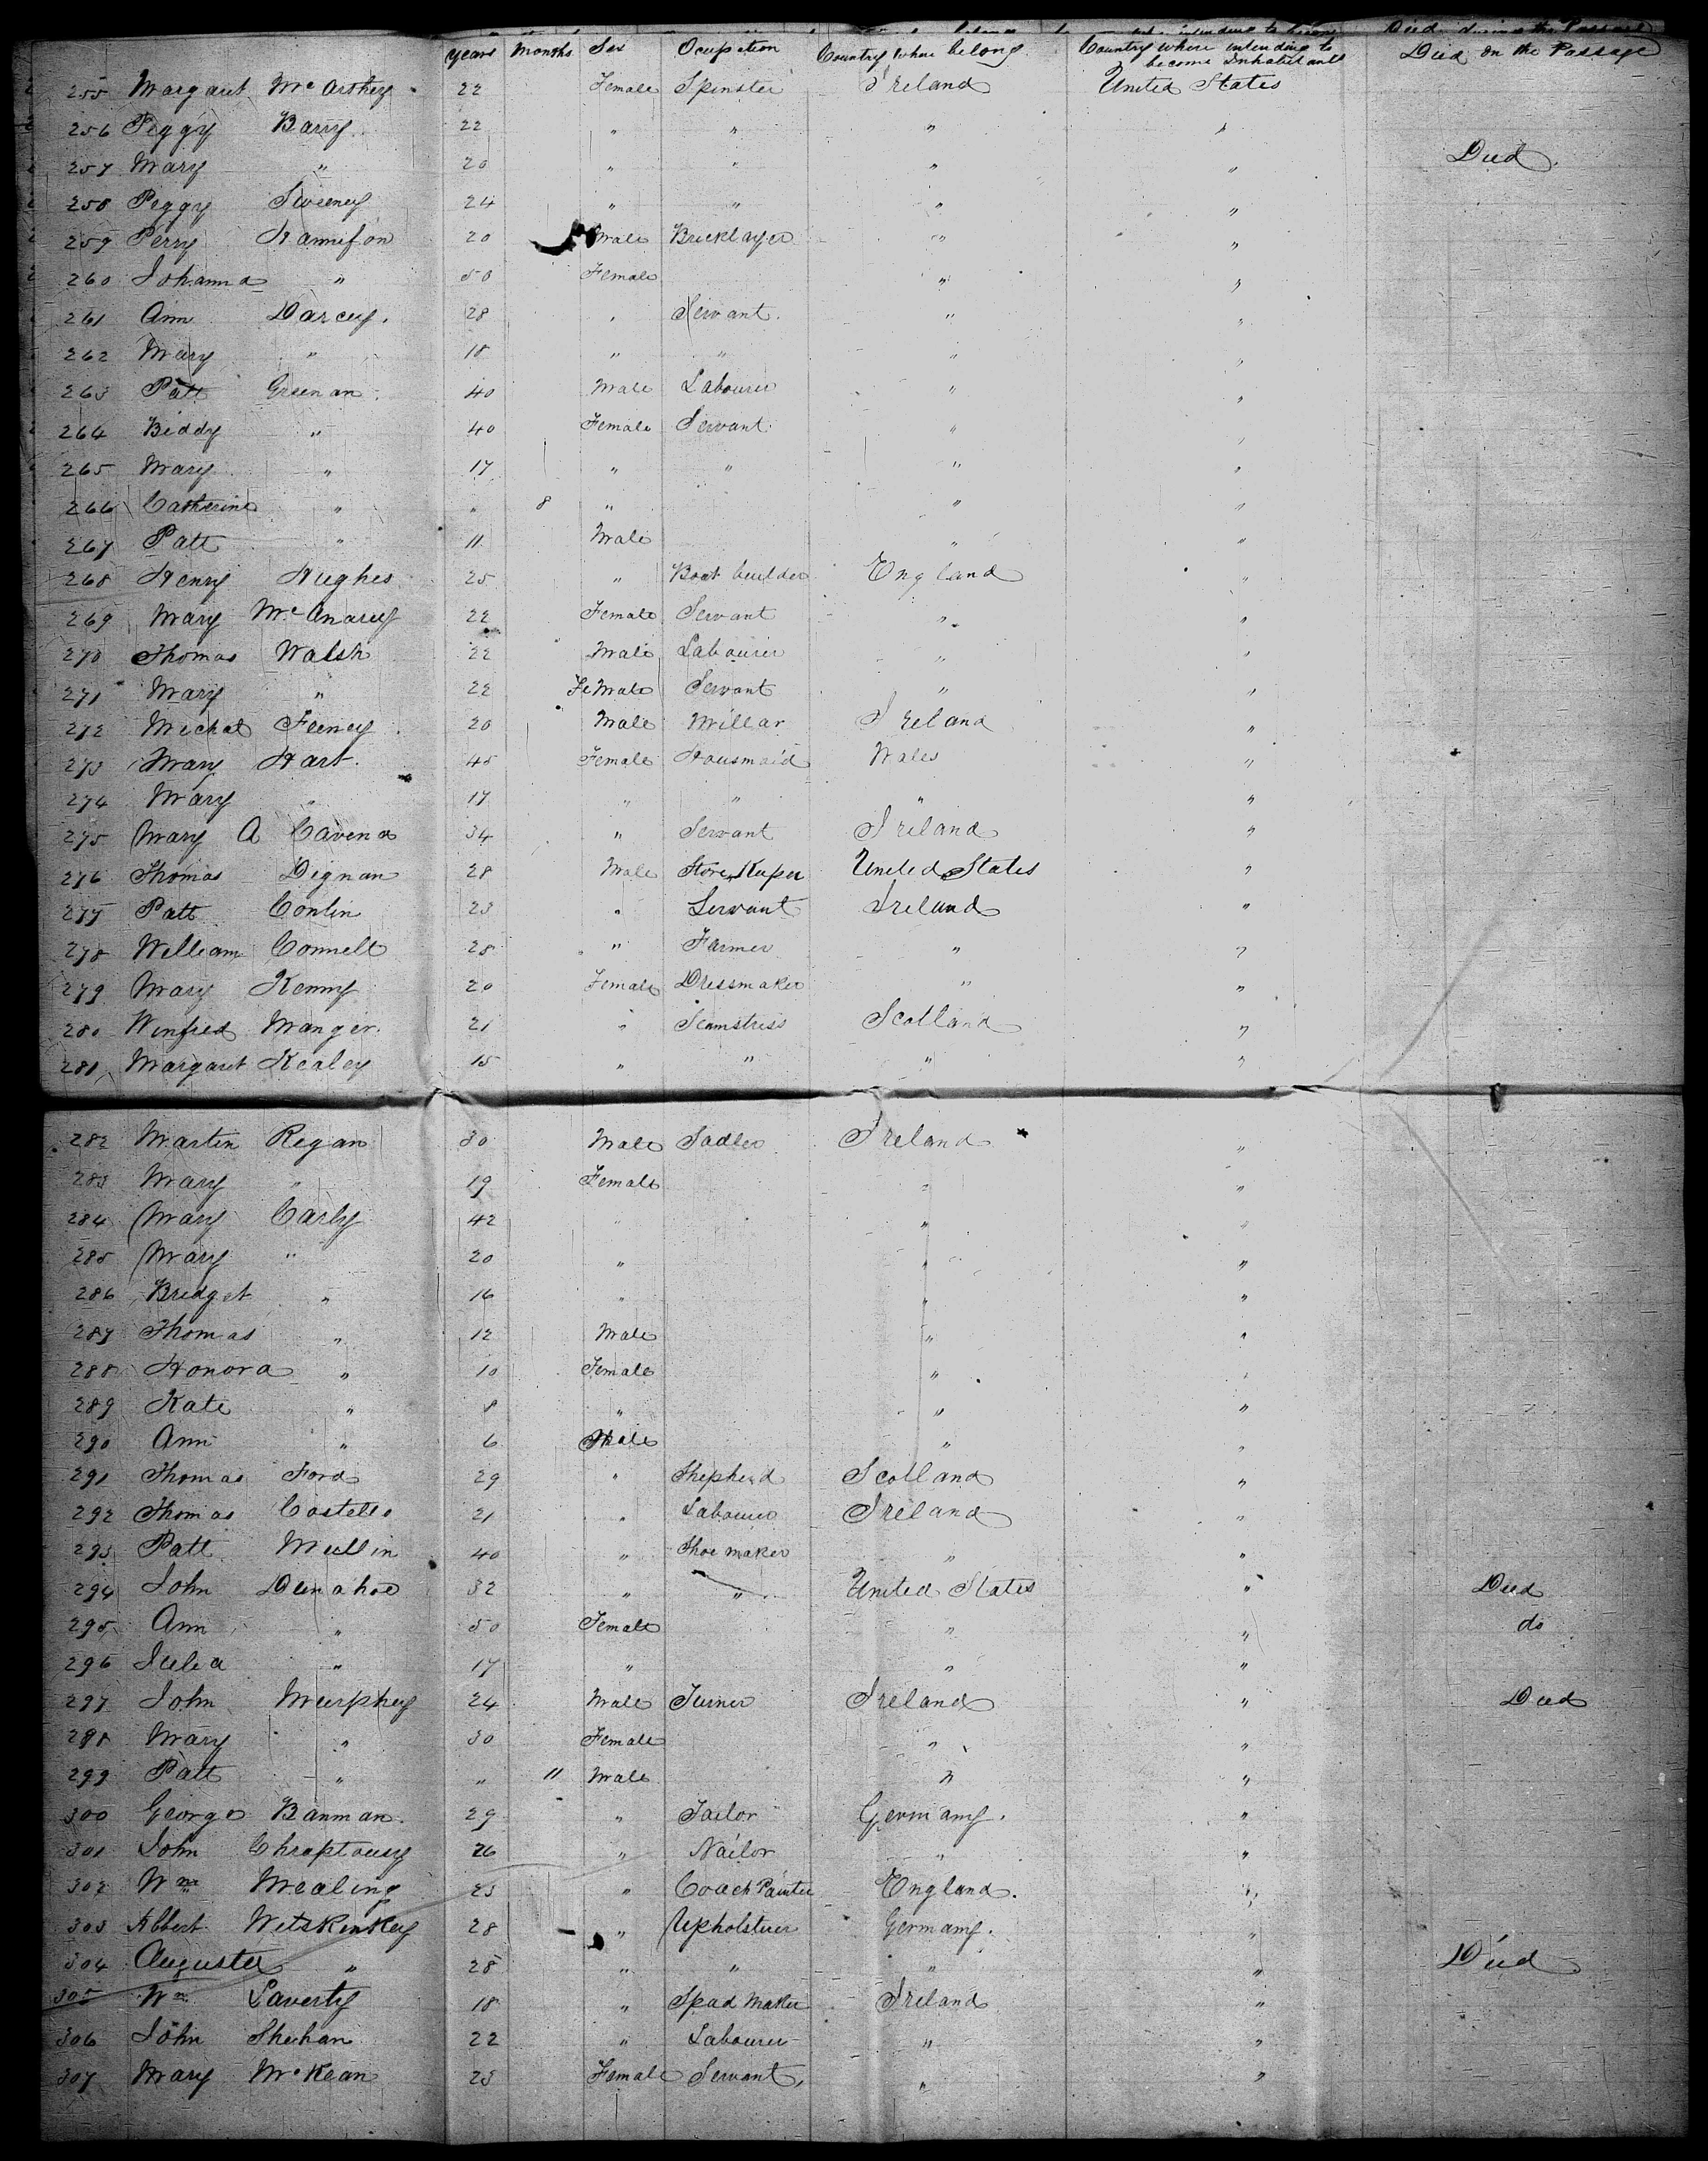 years months Sex Ocupation Country where belong Country where intending to become Inhabitants Died on the Passage
255 Margaret McArthey 22 Female Spinster Ireland United States
256 Peggy Barry 22 " " " "
257 Mary " 20 " " " " Died
258 Peggy Sweeney 24 " " " "
259 Perry 20 Male Bricklayer " "
260 Johanna " 50 Female " "
261 Ann Darcey. 28 " Servant. " "
262 Mary " 18 " " " "
263 Patt Greenan 40 Male Labourer " "
264 Biddy " 40 Female Servant " "
265 Mary " 17 " " " "
266 Catherine " " 8 " " "
267 Patt " 11 Male " "
268 Henry Hughes 25 " Boat builder England "
269 Mary 22 Female Servant " "
270 Thomas Walsh 22 Male Labourer " "
271 Mary " 22 FeMale Servant " "
272 Michal Feeney 20 Male Millar Ireland "
273 Mary Hart. 45 Female Housmaid Wales "
274 Mary " 17 " " " "
275 Mary A Cavena 34 " Servant Ireland "
276 Thomas Dignan 28 Male Store Keeper United States "
277 Patt Conlin 23 " Servant Ireland "
278 William Connell 28 " Farmer " "
279 Mary Kenny 20 Female Dressmaker " "
280 Winfred Manger. 21 " Seamstriss Scotland "
281 Margaret Kealey 15 " " " "
282 Martin Regan 30 Male Sadler Ireland "
283 Mary " 19 Female " "
284 Mary Carly 42 " " "
285 Mary " 20 " " "
286 Bridget " 16 " " "
287 Thomas " 12 Male " "
288 Honora " 10 Female " "
289 Kate " 8 " " "
290 Ann " 6 Male " "
291 Thomas Ford 29 " Shepherd Scotland "
292 Thomas Costello 21 " Labourer Ireland "
293 Patt Mullin 40 " Shoe maker " "
294 John Dunahoe 32 " " United States " Died
295 Ann " 50 Female " " do
296 Julia " 17 " " "
297 John Murphey 24 Male Turner Ireland " Died
298 Mary " 30 Female " "
299 Patt " " 11 Male " "
300 George Banman. 29 " Tailor Germany. "
301 John Chraptousy 26 " Nailor " "
302 Wm Mealing 23 " Coach Painter England. "
303 Albert Witskinkey 28 " Upholsturer Germany. "
304 Auguster " 28 " " " " Died
305 Wm Laverty 18 " Spad Maker Ireland "
306 John Shehan 22 " Labourer " "
307 Mary McKean 25 Female Servant, " "